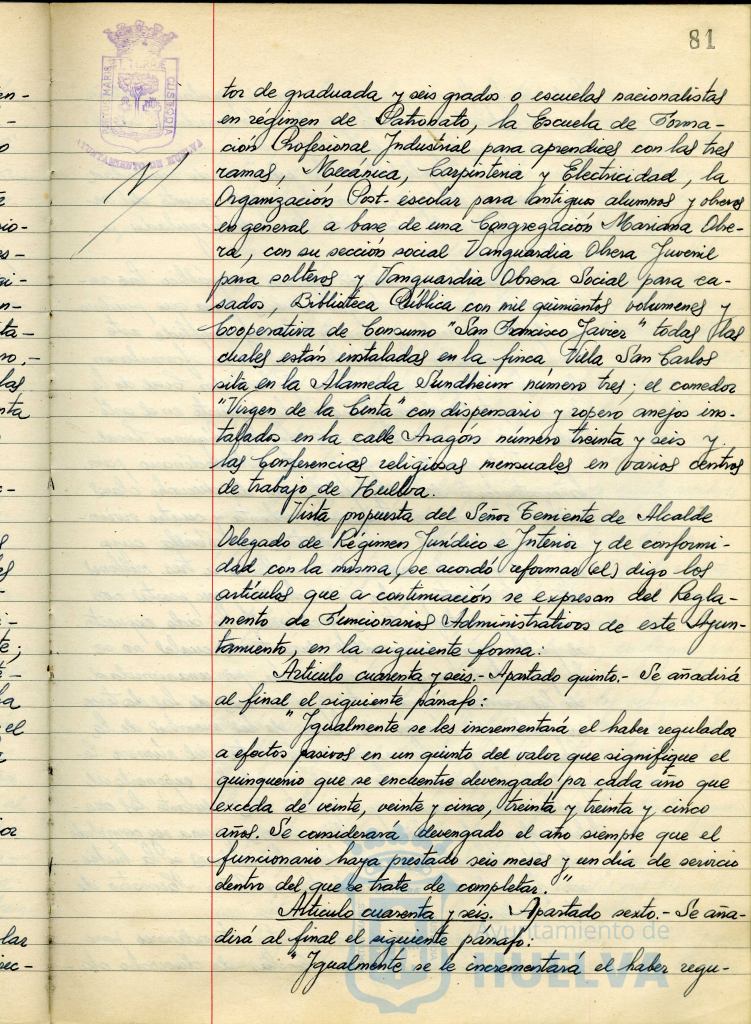 81
PORTUS MARIS ET TERRAE CUSTODIA
AYUNTAMIENTO DE HUELVA
tor de graduada y seis grados o escuelas nacionalistas
en régimen de Patrobato, la Escuela de Forma-
ción Profesional Industrial para aprendices con las tres
ramas, Mecánica, Carpinteria y Electricidad, la
Organización Post-escolar para antiguos alumnos y obreros
en general a base de una Congregación Mariana Obre-
ra, con su sección social Vanguardia Obrera Juvenil
para solteros y Vanguardia Obrera Social para ca-
sados, Biblioteca Pública con mil quinientos volumenes y
Cooperativa de Consumo "San Francisco Javier" todas las
cuales están instaladas en la finca Villa San Carlos
sita en la Alameda Sundheim número tres; el comedor
"Virgen de la Cinta" con dispensario y ropero anejos ins-
talados en la calle Aragón número treinta y seis y
las Conferencias religiosas mensuales en varios centros
de trabajo de Huelva.
Vista propuesta del Señor Teniente de Alcalde
Delegado de Régimen Jurídico e Interior y de conformi-
dad con la misma, se acordó reformar (el) digo los
artículos que a continuación se expresan del Regla-
mento de Funcionarios Administrativos de este Ayun-
tamiento, en la siguiente forma:
Artículo cuarenta y seis.- Apartado quinto.- Se añadirá
al final el siguiente párrafo:
"Igualmente se les incrementará el haber regulador
a efectos pasivos en un quinto del valor que signifique el
quinquenio que se encuentre devengado por cada año que
exceda de veinte, veinte y cinco, treinta y treinta y cinco
años. Se considerará devengado el año siempre que el
funcionario haya prestado seis meses y un día de servicio
dentro del que se trate de completar."
Artículo cuarenta y seis. Apartado sexto.- Se aña-
dirá al final el siguiente párrafo:
"Igualmente se le incrementará el haber regu-
Ayuntamiento de
HUELVA